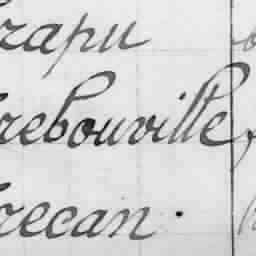 rapu
rebouville
recan.